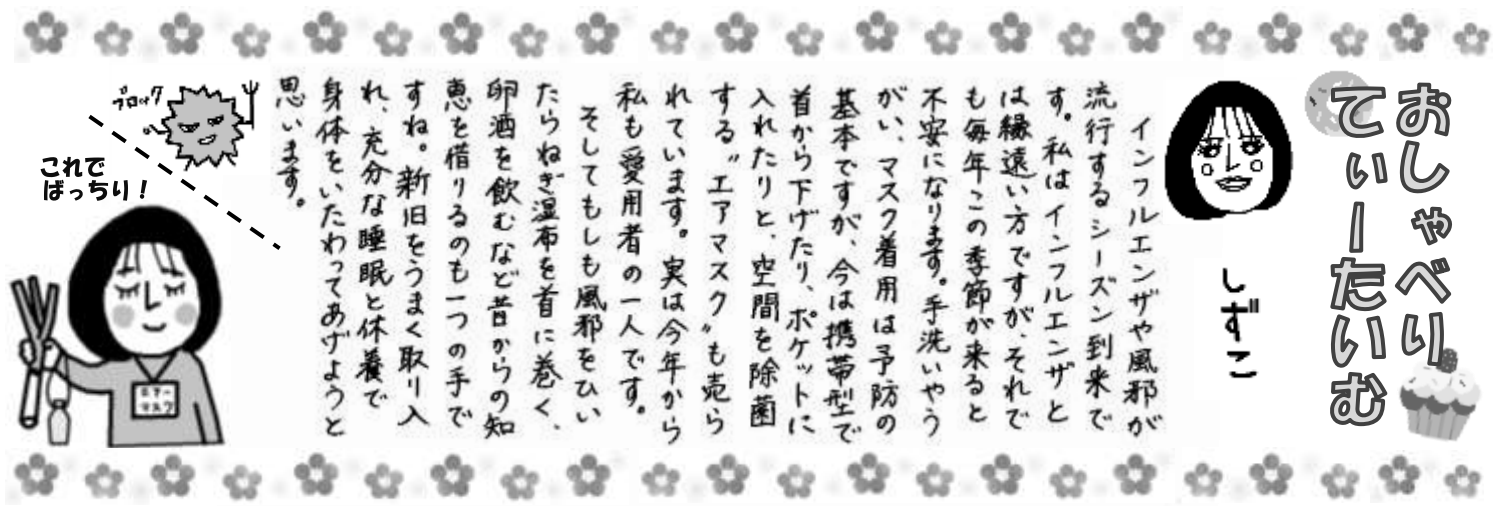 おしゃべり
てぃーたいむ
しずこ
インフルエンザや風邪が
流行するシーズン到来で
す。私はインフルエンザと
は縁遠い方ですが、それで
も毎年この季節が来ると
不安になります。手洗いやう
がい、マスク着用は予防の
基本ですが、今は携帯型で
首から下げたり、ポケットに
入れたりと、空間を除菌
する〝エアマスク〟も売ら
れています。実は今年から
私も愛用者の一人です。
そしてもしも風邪をひい
たらねぎ湿布を首に巻く、
卵酒を飲むなど昔からの知
恵を借りるのも一つの手で
すね。新旧をうまく取り入
れ、充分な睡眠と休養で
身体をいたわってあげようと
思います。
ブロック
これで
ばっちり!
エアー
マスク